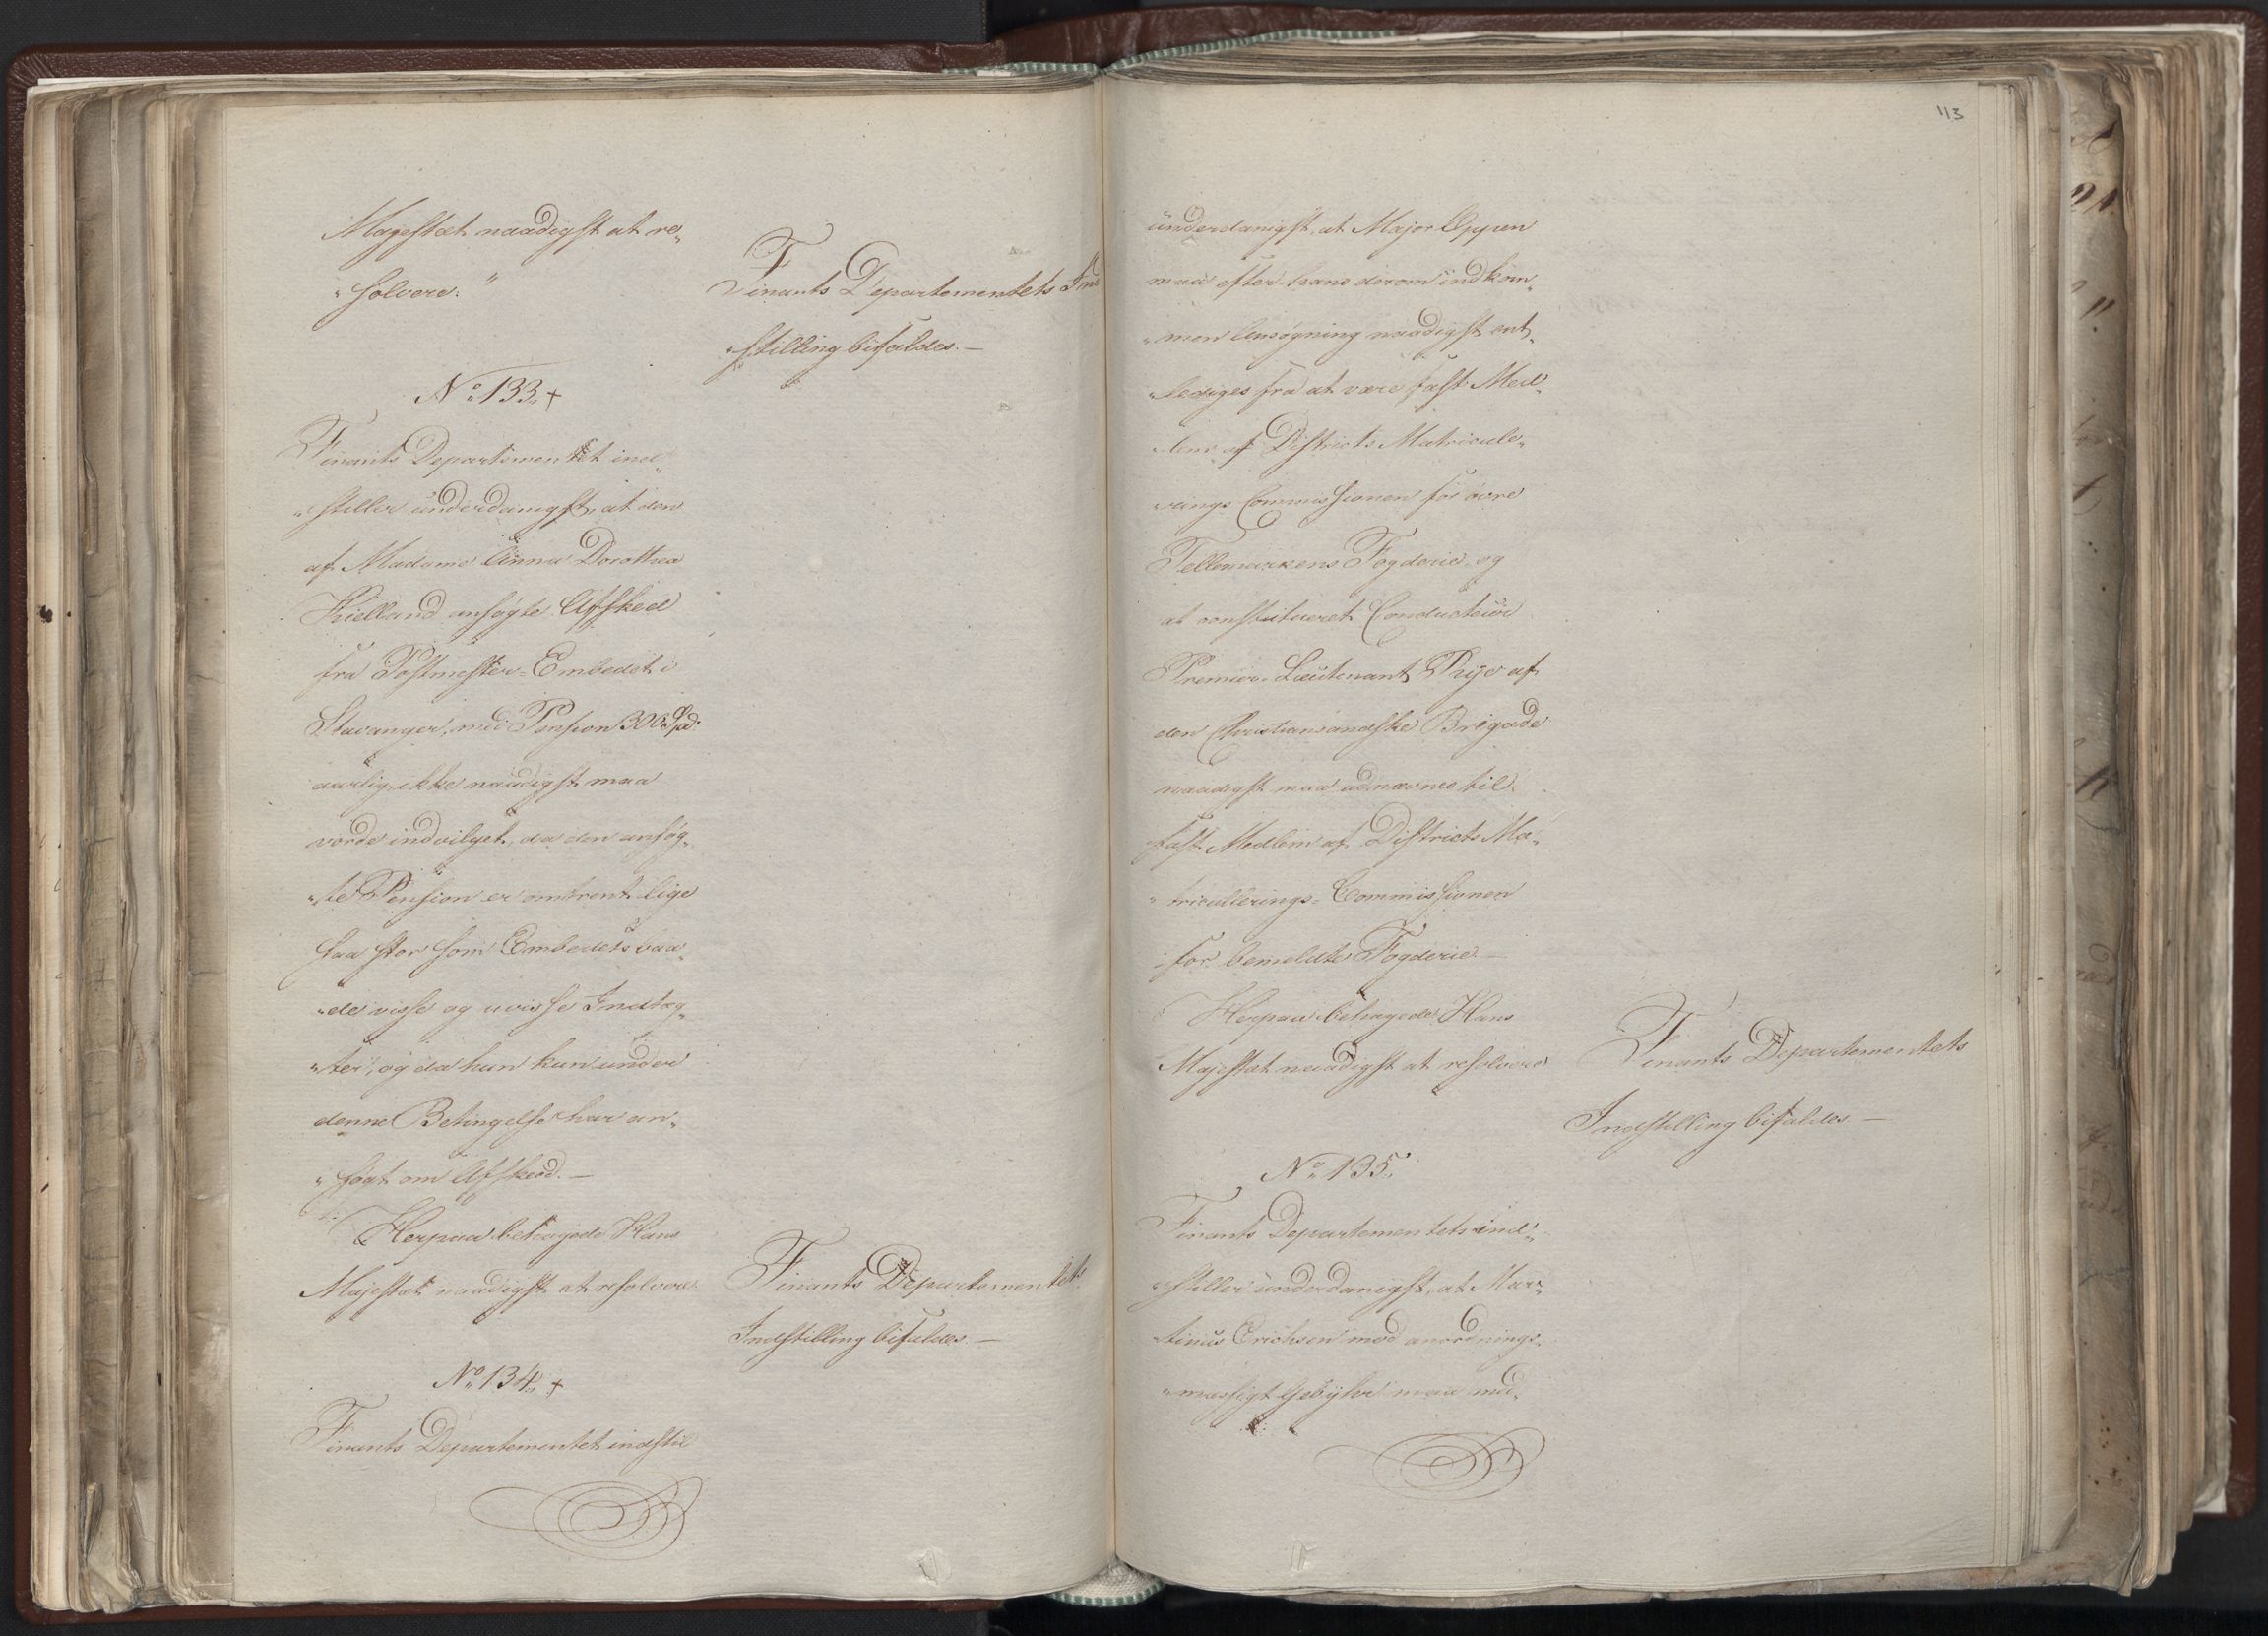 Majestæt naadigst at re„
„solvere: "
Finants Departementets Ind
„stilling bifaldes. —
No 133. +
Finants Departementet ind„
„stiller underdanigst, at den
af Madame Anna Dorothea
Kielland ansøgte Afsked
fra Postmester-Embedet i
Stavanger, med Pension 300 Spd:
aarlig, ikke naadigst maa
vorde indvilget, da den ansøg„
„te Pension er omtrent lige
saa stor som Embedets baa„
„de visse og uvisse Indtæg„
„ter, og da hun kun under
denne Betingelse har an„
„søgt om Afsked. —
Herpaa behagede Hans
Majestæt naadigst at resolvere
Finants Departementets
Indstilling bifaldes —
No 134. +
Finants Departementet indstil
113
underdanigst, at Major Oppen
maa efter hans derom indkom„
„men Ansøgning naadigst ent„
„lediges fra at være fast Med„
„lem af Districts Matricule„
„rings Commissionen for øvre
Tellemarkens Fogderie, og
at constitueret Conducteur
Premier-Lieutenant Rye af
den Christiansandske Brigade
naadigst maa udnævnes til
fast Medlem af Districts Ma„
„triculerings-Commissionen
for bemeldte Fogderie —
Herpaa behagede Hans
Majestæt naadigst at resolvere
Finants Departementets
Indstilling bifaldes —
No 135.
Finants Departementets ind„
„stiller underdanigst, at Mar„
„tinus Erichsen mod anordnings„
„mæssigt Gebyhr maa med„